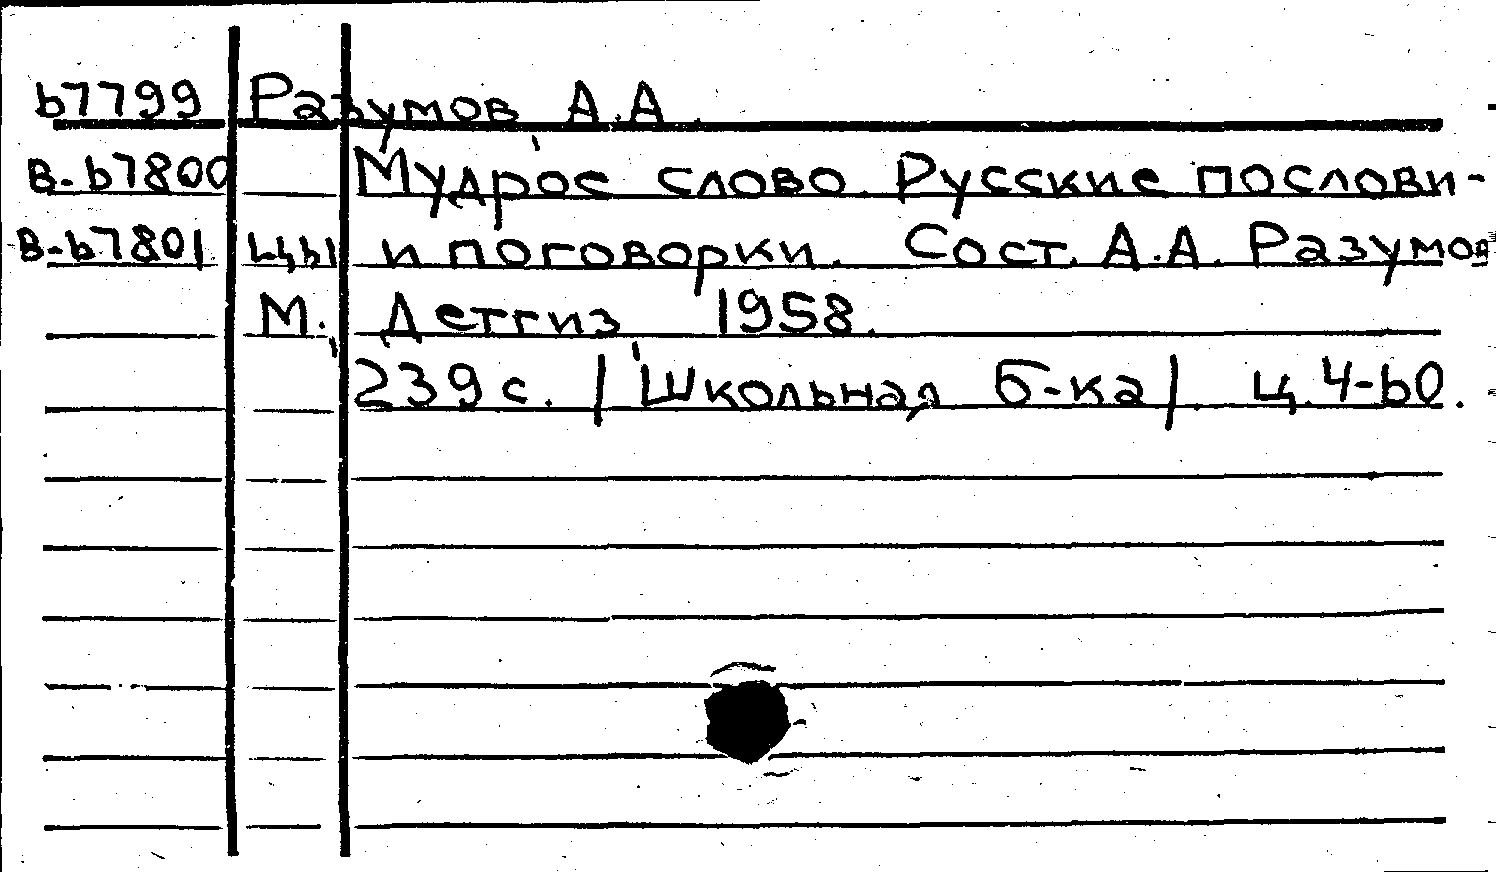 b7799 Разумов, А.А.
в-b7800 Мудрое слово. Русские послови-
в-b7801 цы и поговорки. Сост. А.А. Разумов
М., Детгиз, 1958.
239 с. /Школьная б-ка/. ц.4-b0.